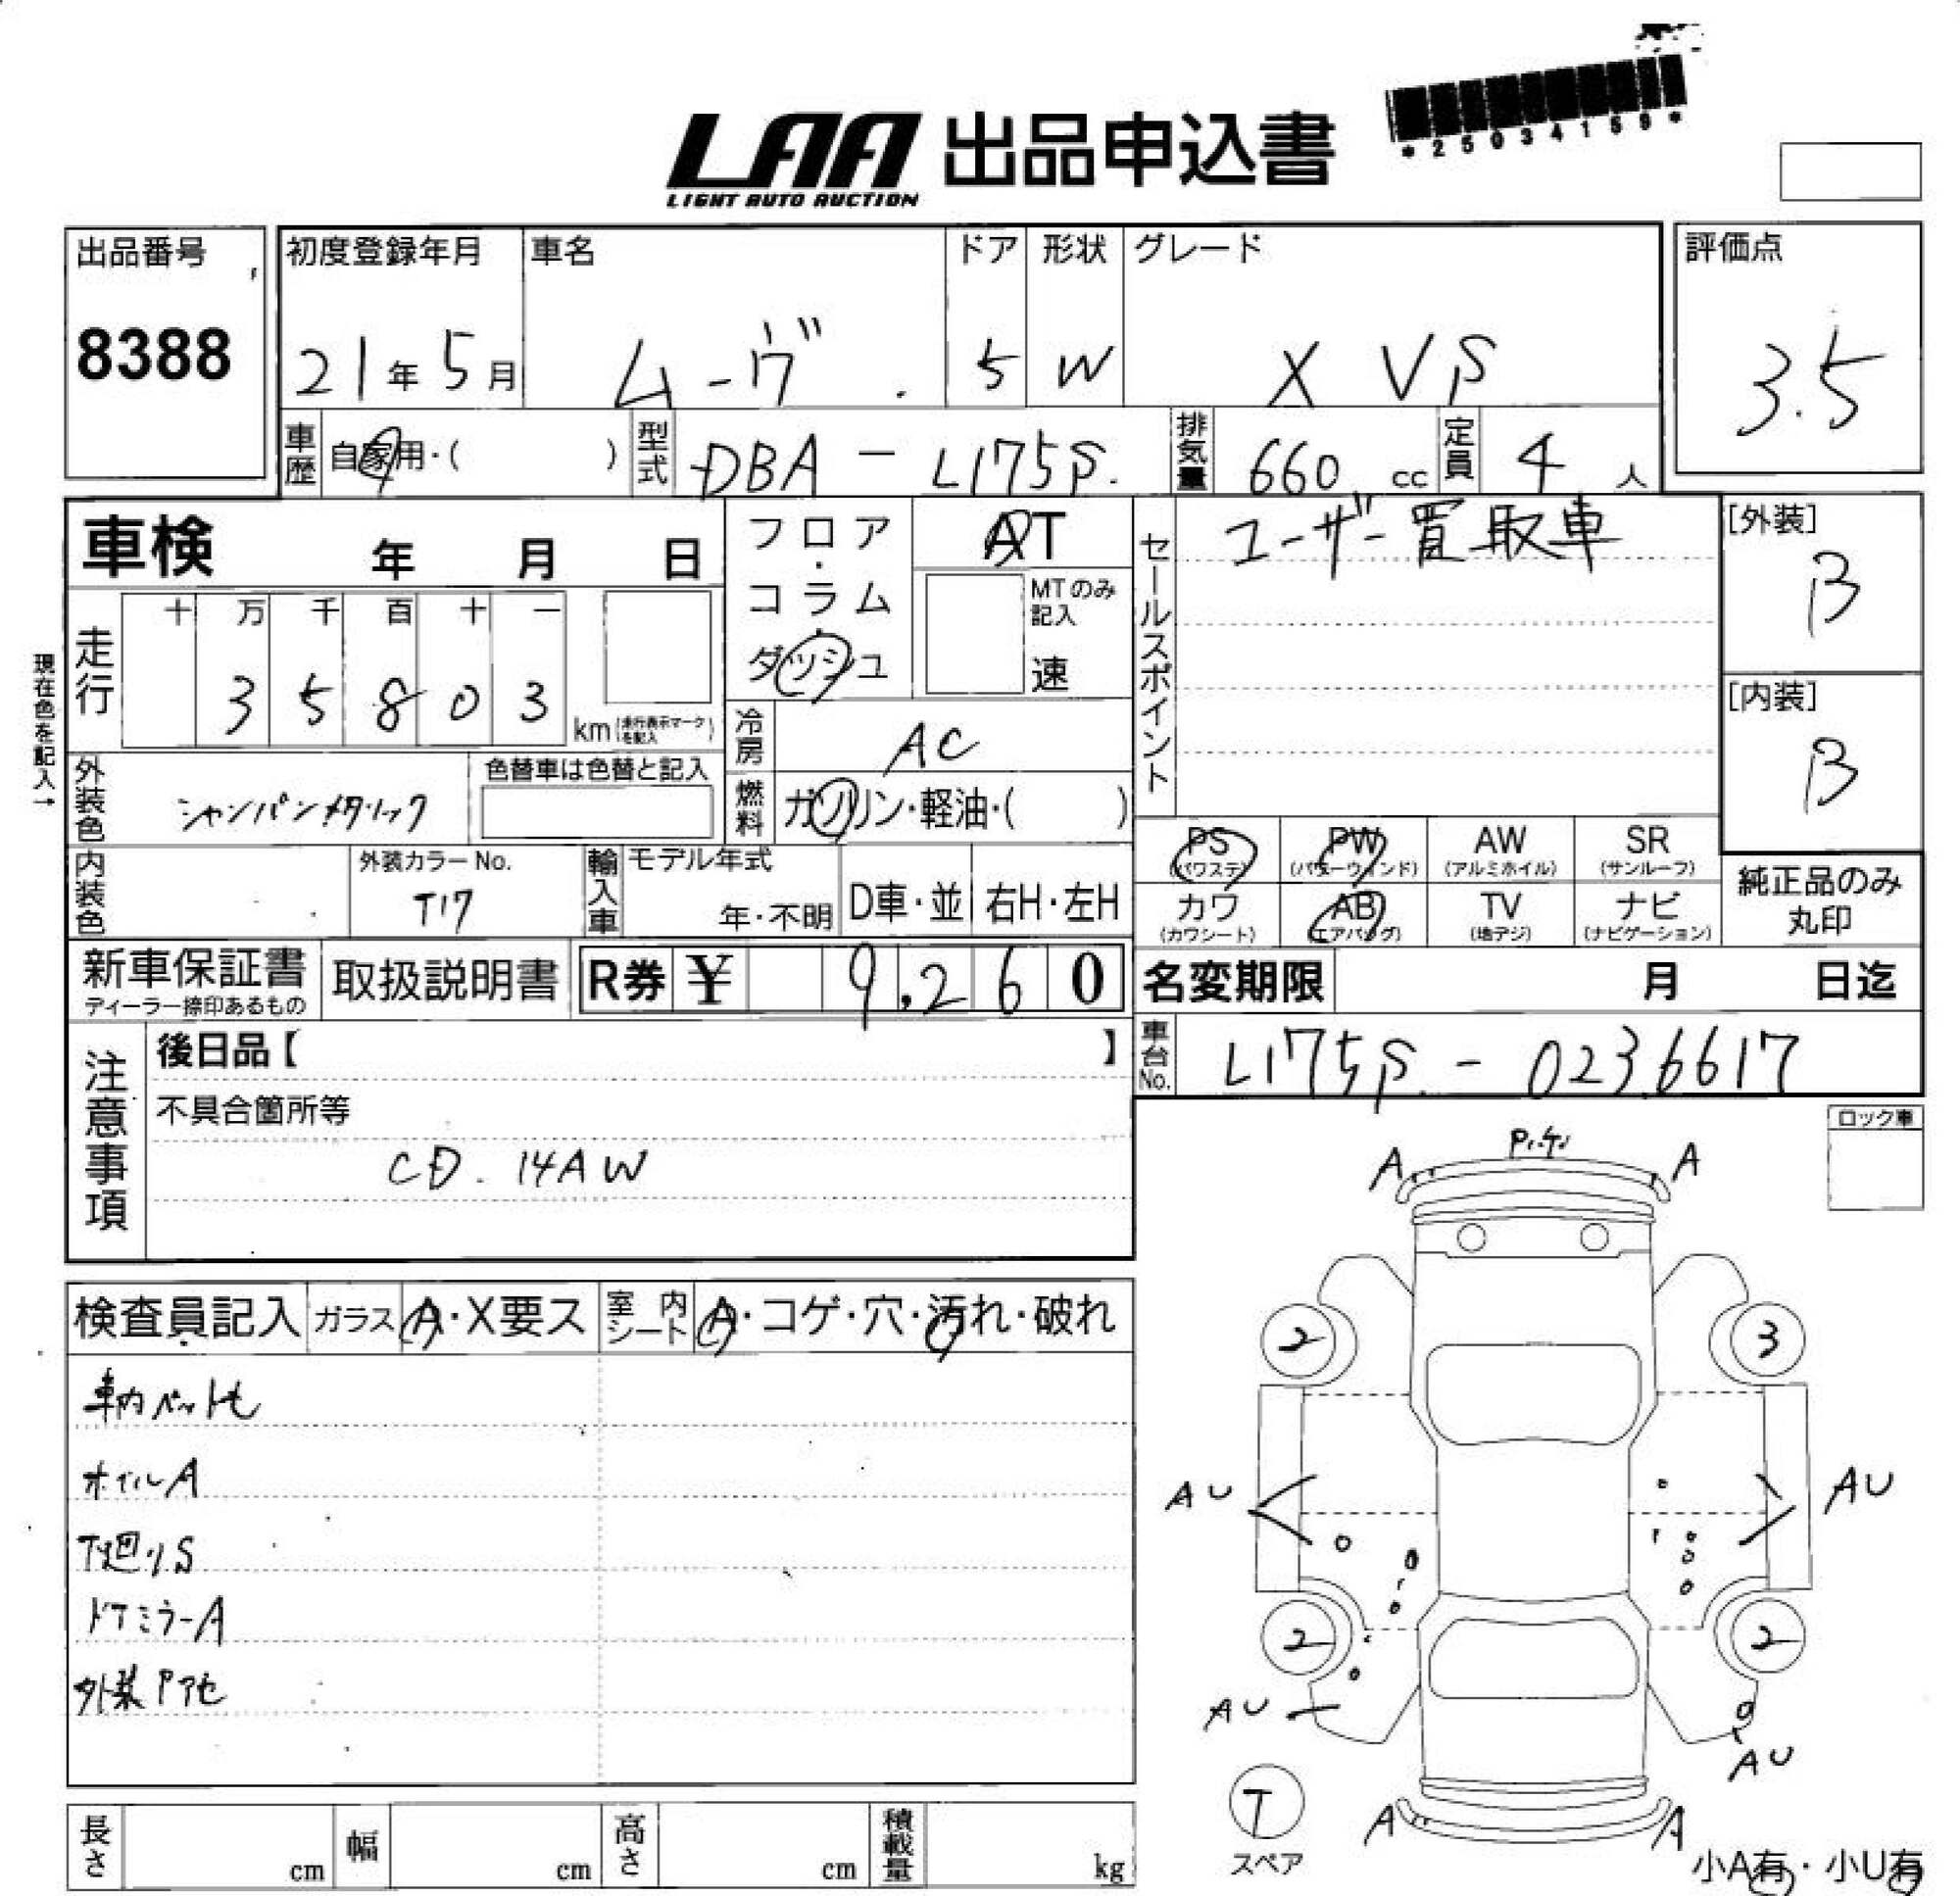 *25034159*
LAA 出品申込書
LIGHT AUTO AUCTION
出品番号
8388
初度登録年月
21年5月
車名
ムーヴ
ドア
5
形状
W
グレード
X VS
評価点
3.5
車歴 自家用・( )
型式 DBA-L175S
排気量 660 cc
定員 4 人
車検 年 月 日
フロア・コラム・ダッシュ
AT
MTのみ記入
速
セールスポイント
ユーザー買取車
[外装]
B
[内装]
B
現在色を記入→
走行
十 万 千 百 十 一
3 5 8 0 3
km(走行表示マークを記入)
冷房 AC
燃料 ガソリン・軽油・( )
外装色 シャンパンメタリック
色替車は色替と記入
内装色
外装カラーNo.
T17
輸入車
モデル年式
年・不明
D車・並
右H・左H
PS (パワステ)
PW (パワーウインド)
AW (アルミホイル)
SR (サンルーフ)
カワ (カワシート)
AB (エアバッグ)
TV (地デジ)
ナビ (ナビゲーション)
純正品のみ丸印
新車保証書
ディーラー捺印あるもの
取扱説明書
R券 ¥ 9,260
名変期限 月 日迄
車台No. L175S-0236617
注意事項
後日品【 】
不具合箇所等
CD. 14AW
ロック車
検査員記入
ガラス A・X要ス
室内シート A・コゲ・穴・汚れ・破れ
車内ペット毛
ホイルA
下廻りS
ドアミラーA
A A
2 3
AU AU
2 2
AU AU
T
スペア
A A
小A有・小U有
長さ cm
幅 cm
高さ cm
積載量 kg